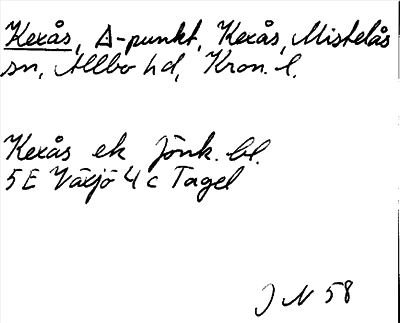 Kexås, Δ-punkt, Kexås, Mistelås
sn, Allbo hd, Kron. l.
Kexås ek Jönk. bl.
5 E Växjö 4 c Tagel
J N 58